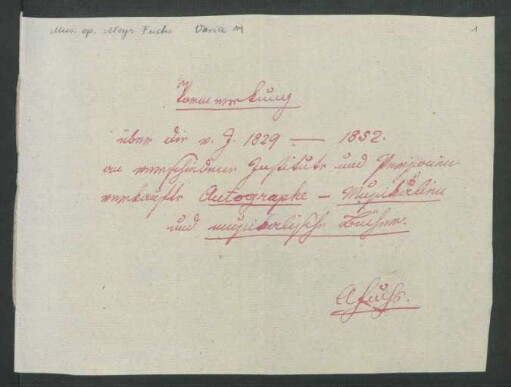 Mus. ep. Aloys Fuchs Varia 1
Vormerkung
über die v. J. 1829 — 1852.
an verschiedene Institute und Personen
verkaufte Autographe – Musikalien
und musikalische Bücher.
AFuchs.